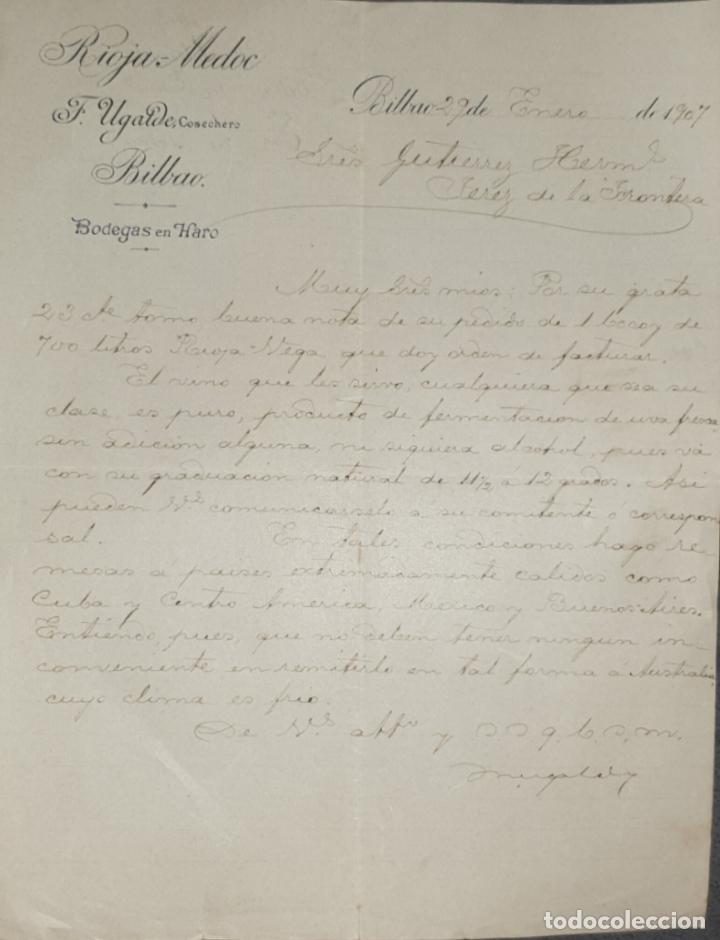 Rioja-Medoc
F. Ugalde, Cosechero
Bilbao.
Bodegas en Haro
Bilbao 29 de Enero de 1907
Srés Gutierrez Herm.ˢ
Jerez de la Frontera
Muy Srés mios: Por su grata
23 Ac tomo buena nota de su pedido de 1 bocoy de
700 litros Rioja-Vega que doy orden de facturar.
El vino que les sirvo, cualquiera que sea su
clase, es puro, producto de fermentacion de uva fresca
sin adicion alguna, ni siquiera alcohol, pues vá
con su graduacion natural de 11½ á 12 grados. Asi
pueden V.ˢ comunicarselo a su comitente ó correspon
sal. En tales condiciones hago re-
mesas á paises extremadamente calidos como
Cuba y Centro America, Mexico y Buenos-Aires.
Entiendo, pues, que no deben tener ningun in-
conveniente en remitirlo en tal forma á Australia
cuyo clima es frio.
De V.ˢ att.º y s s q. b. s. m.
todocoleccion.net